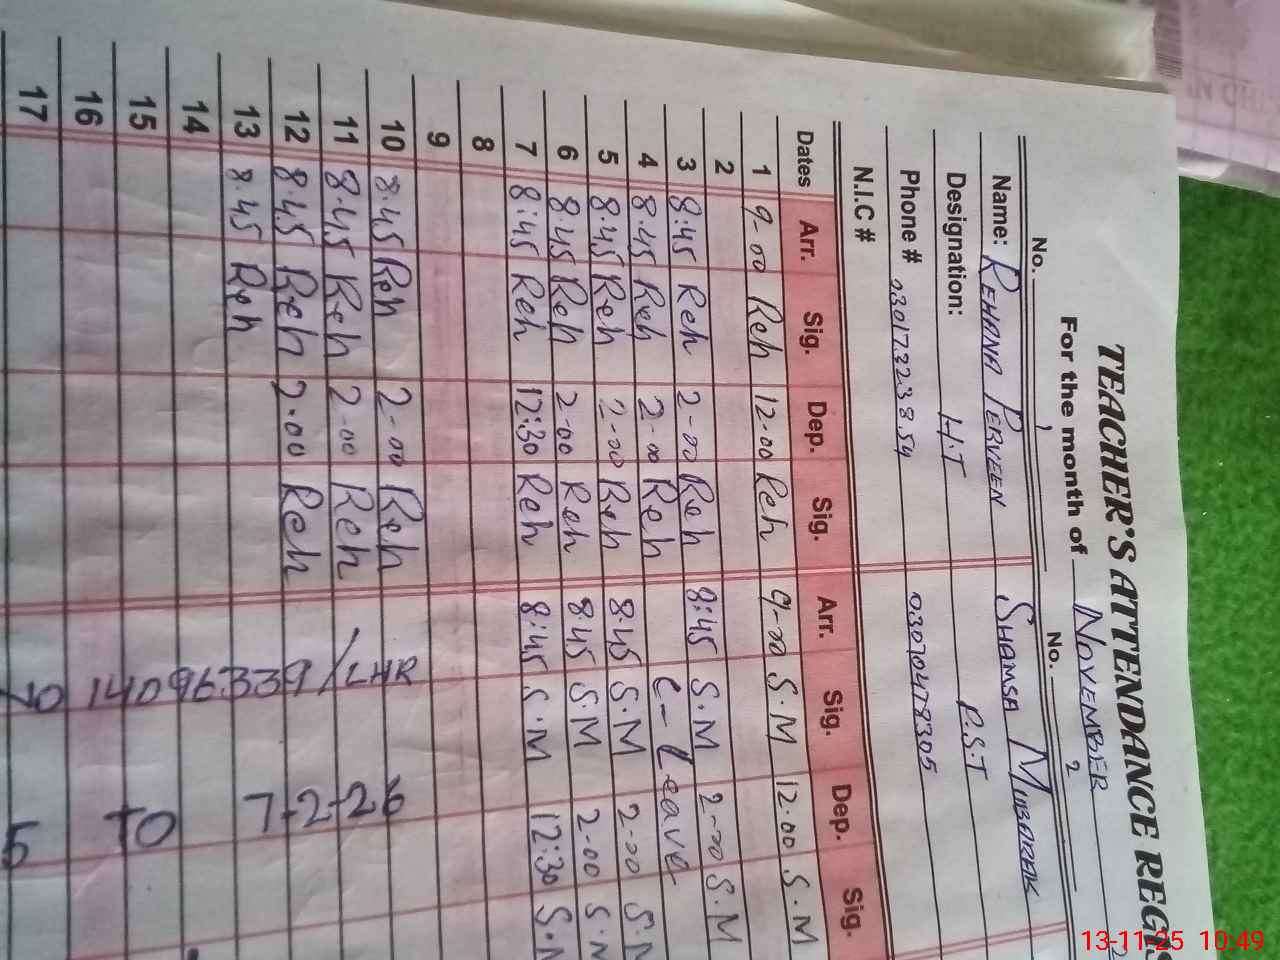 TEACHER'S ATTENDANCE
For the month of NOVEMBER 2
No. 1 No. 2 No.
Name: REHANA PERVEEN SHAMSA MUBARAK
Designation: H.T P.S.T
Phone # 03017323854 03070478305
N.I.C #
Dates Arr. Sig. Dep. Sig. Arr. Sig. Dep. Sig.
1 9-00 Reh 12.00 Reh 9-00 S.M 12.00 S.M
2
3 8:45 Reh 2-00 Reh 8:45 S.M 2-00 S.M
4 8.45 Reh 2-00 Reh C-Leave
5 8.45 Reh 2-00 Reh 8.45 S.M 2-00
6 8.45 Reh 2-00 Reh 8.45 S.M 2-00
7 8:45 Reh 12:30 Reh 8:45 S.M 12:30
8
9
10 8.45 Reh 2-00 Reh
11 8.45 Reh 2-00 Reh
12 8.45 Reh 2.00 Reh
13 8.45 Reh
14
15
16
17
14096339/LHR
TO 7-2-26
13-11-25 10:49